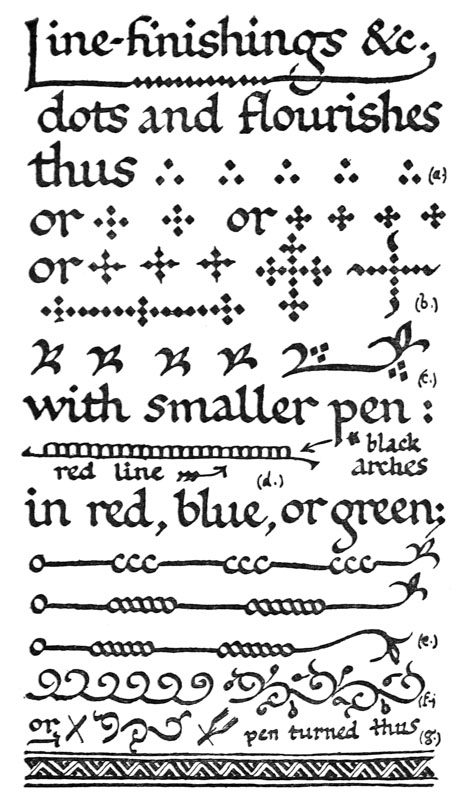 Line-finishings &c.,
dots and flourishes
thus (a.)
or or
or (b.)
(c.)
with smaller pen :
black
red line (d.) arches
in red, blue, or green:
(e.)
(f.)
or pen turned thus (g.)